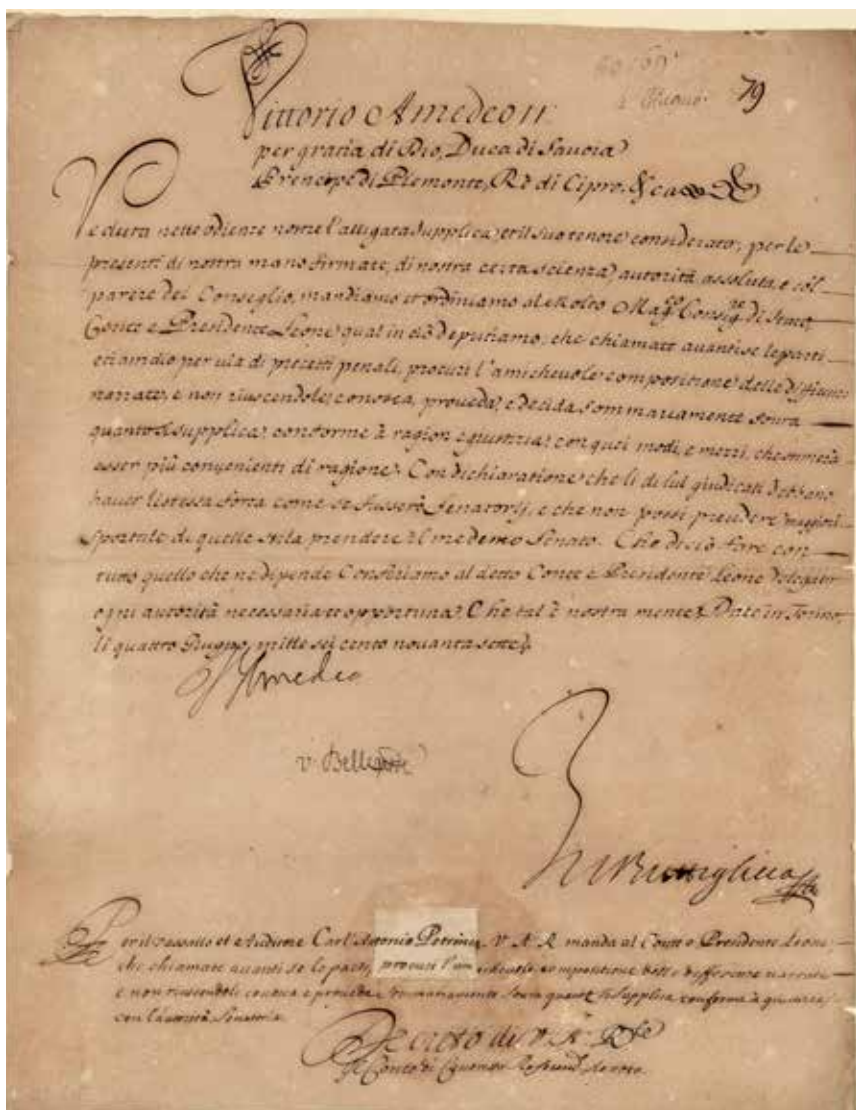 79
4 Giugno
Vittorio Amedeo II
per gratia di Dio, Duca di Savoia
Prencipe di Piemonte, Rè di Cipro. &ca
Veduta nelle odienze nostre l'alligata supplica, et il suo tenore considerato; per le
presenti di nostra mano firmate, di nostra certa scienza, autorità assoluta, e col
parere del Consiglio, mandiamo et ordiniamo al Molto Magco Consigre di Stato,
Conte e Presidente Leone qual in ciò deputiamo, che chiamate avanti se le parti
etiamdio per via di precetti penali, procuri l'amichevole compositione delle differenze
narrate, e non riuscendole, conosca, proveda, e decida sommariamente sovra
quanto si supplica, conforme à ragion e giustitia, con quei modi, e mezzi, che stimerà
esser più convenienti di ragione. Con dichiaratione che li di lui giudicati debbano
haver l'istessa forza come se fussero Senatorij, e che non possi prendere maggiori
sportule di quelle suole prendere il medemo Senato. Che di ciò fare con
tutto quello che ne dipende Conferiamo al detto Conte e Presidente Leone delegato
ogni autorità necessaria et opportuna, Che tal è nostra mente. Dato in Torino,
li quattro Giugno, mille sei cento novanta sette.
V Amedeo
v. Bellegarde
Per il Vassallo et Carl'Antonio Petrina, V. A. R. manda al Conte e Presidente Leone,
che chiamate avanti se le parti, procuri l'amichevole compositione delle differenze narrate
e non riuscendoli conosca e proveda sommariamente sovra quanto si supplica conforme à giustizia,
con l'autorità Senatoria.
Decreto di V. A. Rle